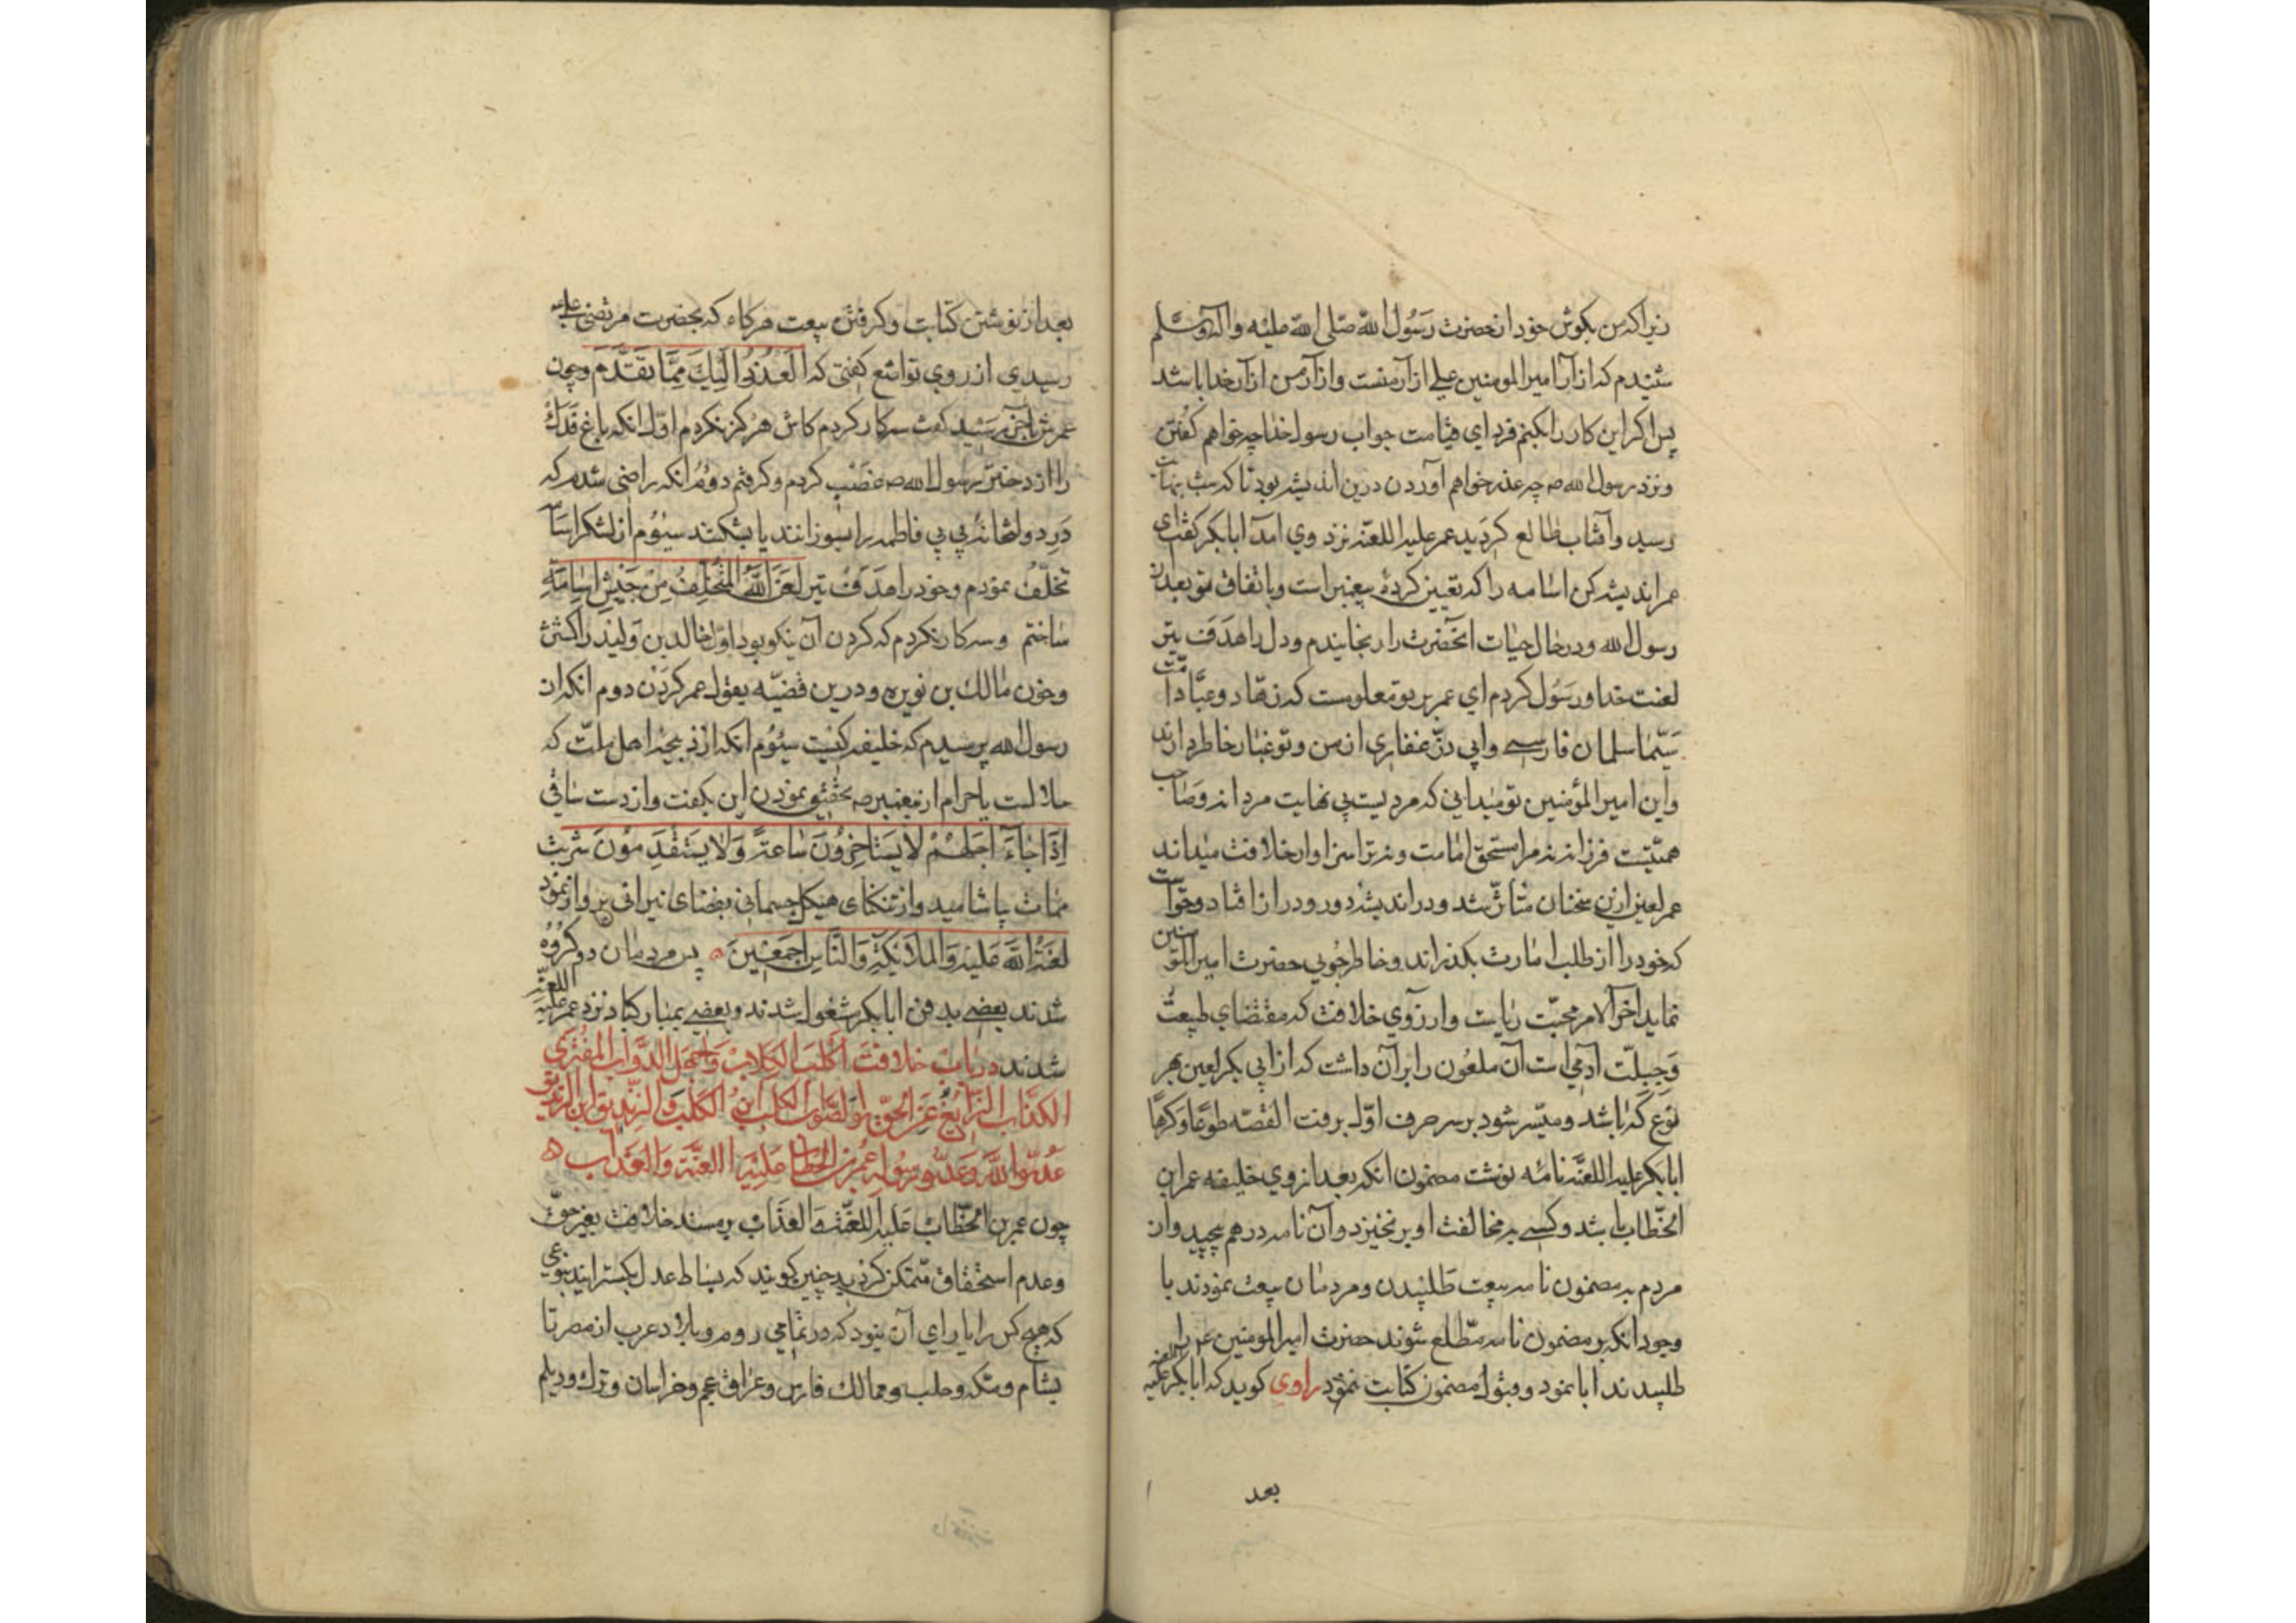 زیراکه من بکوش خود از حضرت رَسُول اللّه صلّی اللّه علیه واله وسلّم
شنیدم که ازار امیرالمومنین علی ازار منست وازار من ازار خدا باشد
پس اکر این کار را بکنم فردای قیامت جواب رسول خدا چه خواهم کفتن
ونزد رسول الله ص چه عذر خواهم آوردن درین اندیشه بود تا که شب بنهایت
رسید وآفتاب طالع کردید عمر علیه اللعنه نزد وی امد ابابکر کفت ای
عمر اندیشه کن اسامه را که تعیین کرده پیغمبر است وباتفاق تو بعد از
رسول الله ودر حال حیات انحضرت را رنجانیدم ودل را هدف تیر
لعنت خدا ورسول کردم ای عمر بر تو معلومست که زهّاد وعبّاد امّت
سیّما سلمان فارسی وابی ذرّ غفاری از من وتو غبار خاطر دارند
واین امیرالمؤمنین تو میدانی که مردیست بی نهایت مردانه وصاحب
همّتیست فرزانه نه مرا مستحق امامت ونه ترا سزاوار خلافت میداند
عمر لعین ازین سخنان متاثّر شد ودر اندیشه دور ودراز افتاد وخواست
که خود را از طلب امارت بکذراند وخاطرجویی حضرت امیرالمؤمنین
نماید اخرالامر محبّت ریاست وارزوی خلافت که مقتضای طبیعت
وَجِبِلّت آدمی است آن ملعون را بر آن داشت که از ابی بکر لعین بهر
نوع که باشد ومیسّر شود بر سر حرف اوّل برفت القصّه طوعًا وکرهًا
ابابکر علیه اللعنه نامه نوشت مضمون انکه بعد از وی خلیفه عمر ابن
الخطّاب باشد وکسی بر مخالفت او بر نخیزد وآن نامه درهم پیچید واز
مردم به مضمون نامه بیعت طلبیدن ومردمان بیعت نمودند با
وجود انکه بر مضمون نامه مطّلع شوند حضرت امیرالمومنین ع را
طلبیدند ابا نمود وقبول مضمون کتابت ننمود راوی کوید که ابابکر علیه اللعنه
بعد
بعد از نوشتن کتابت وکرفتن بیعت هرکاه که بحضرت مرتضی علی ع
رسیدی از روی تواضع کفتی که اَلعُذرُ اِلَیكَ مِمّا تَقَدَّمَ وچون
عمرش باخر رسید کفت سه کار کردم کاش هرکز نکردم اوّل انکه باغ فدك
را از دختر رسول الله ص غصب کردم وکرفتم دوم انکه راضی شدم که
در دولتخانه بی بی فاطمه را بسوزانند یا بشکنند سیوم از لشکر اسامه
تخلّف نمودم وخود را هدف تیر لَعَنَ اللّهُ المُتَخَلِّفَ مِن جَیشِ اُسامَةَ
ساختم وسه کار نکردم که کردن آن نیکو بود اوّل خالد بن ولید را کشتن
وخون مالك بن نویره ودرین قضیّه بقول عمر کردن دوم انکه از
رسول الله پرسیدم که خلیفه کیست سیوم انکه از ذبیحه اهل ملّت که
حلالست یا حرام از پیغمبر ص تحقیق نمودن این بکفت واز دست ساقی
اِذا جاءَ اَجَلُهُم لا یَستَاخِرُونَ ساعةً وَلا یَستَقدِمُونَ شربت
ممات بیاشامید واز تنکنای هیکل جسمانی بفضای نیرانی پرواز نمود
لَعنَةُ اللّهِ عَلَیهِ وَالمَلائِکَةِ وَالنّاسِ اَجمَعینَ ه پس مردمان دو کروه
شدند بعضی بدفن ابابکر مشغول شدند وبعضی بمبارکباد نزد عمر علیه اللعنه
شدند در بیان خلافت اَکلَبِ الکِلاب وَاجهَلِ الدَّوابّ المُفتَری
الکذّاب الزّایغ عَنِ الحَقّ والصَّواب الکلب ابن الکلب والزندیق ابن الزندیق
عدوّ اللّه وعدوّ رسوله عمر بن الخطاب علیه اللعنة والعذاب ه
چون عمر بن الخطّاب علیه اللعنة والعذاب بر مسند خلافت بغیر حقّ
وعدم استحقاق متمکّن کردید چنین کویند که بساط عدل بکسترانید بنوعی
که هیچ کس را یارای آن نبود که در تمامی روم وبلاد عرب از مصر تا
بشام ومکه وحلب وممالك فارس وعراق عجم وخراسان وترك ودیلم